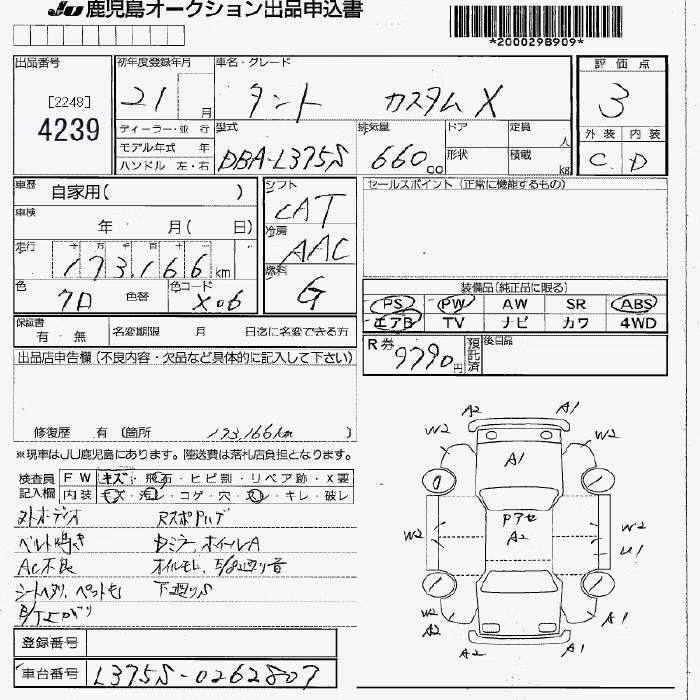 JU 鹿児島オークション出品申込書
*2000298909*
出品番号
[2248]
4239
初年度登録年月
21 月
車名・グレード
タント カスタムX
評価点
3
外装 内装
C D
ディーラー・並行
モデル年式 年
ハンドル 左・右
型式
DBA-L375S
排気量
660cc
ドア
定員
人
形状
積載
kg
車歴
自家用( )
車検
年 月( 日)
走行
十 万 千 百 十 一
173,166km
色
色替
色コード
X06
シフト
CAT
冷房
AAC
燃料
G
セールスポイント (正常に機能するもの)
装備品(純正品に限る)
PS PW AW SR ABS
エアB TV ナビ カワ 4WD
保証書
有・無
名変期限 月 日迄に名変できる方
R券
9790円
預託済
後日品
出品店申告欄(不良内容・欠品など具体的に記入して下さい)
修復歴 有 〔箇所 173,166km 〕
※現車はJU鹿児島にあります。陸送費は落札店負担となります。
検査員記入欄
FW キズ・飛石・ヒビ割・リペア跡・X要
内装 キズ・汚レ・コゲ・穴・ヌレ・キレ・破レ
ベルト鳴き
ホイールA
AC不良
オイルモレ
下廻りS
登録番号
車台番号 L375S-0262807
A2 A1
W2 W2
A1
A2
W2 W2
U1
W2
A2 A1
A2 A1